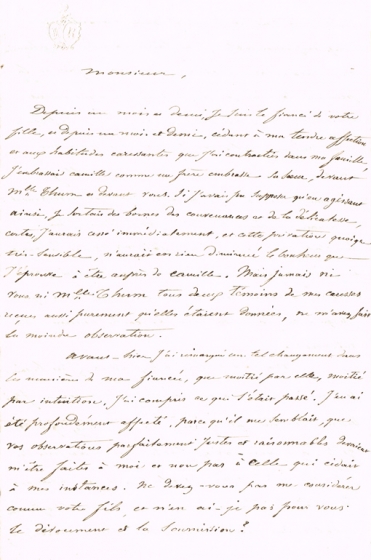 Monsieur,
Depuis un mois et demi, je suis le fiancé de votre
fille, et depuis un mois et demi, cédant à ma tendre affection
et aux habitudes caressantes que j'ai contractées dans ma famille,
j'embrassais Camille comme un frère embrasse sa sœur, devant
Mlle Thurm et devant vous. Si j'avais pu supposer qu'en agissant
ainsi, je sortais des bornes des convenances et de la délicatesse,
certes j'aurais cessé immédiatement, et cette privation quoique
très sensible, n'aurait en rien diminué le bonheur que
j'éprouve à être auprès de Camille. Mais jamais ni
vous ni Mlle Thurm tous deux témoins de mes caresses
reçues aussi purement qu'elles étaient données, ne m'avez fait
la moindre observation.
Avant-hier j'ai remarqué un tel changement dans
les manières de ma fiancée, que moitié par elle, moitié
par intuition, j'ai compris ce qui s'était passé. J'en ai
été profondément affecté, parcequ'il me semblait, que
vos observations parfaitement justes et raisonnables devaient
m'être faites à moi et non pas à celle qui cédait
à mes instances. Ne devez-vous pas me considérer
comme votre fils, et n'en ai-je pas pour vous
le dévouement et la soumission?